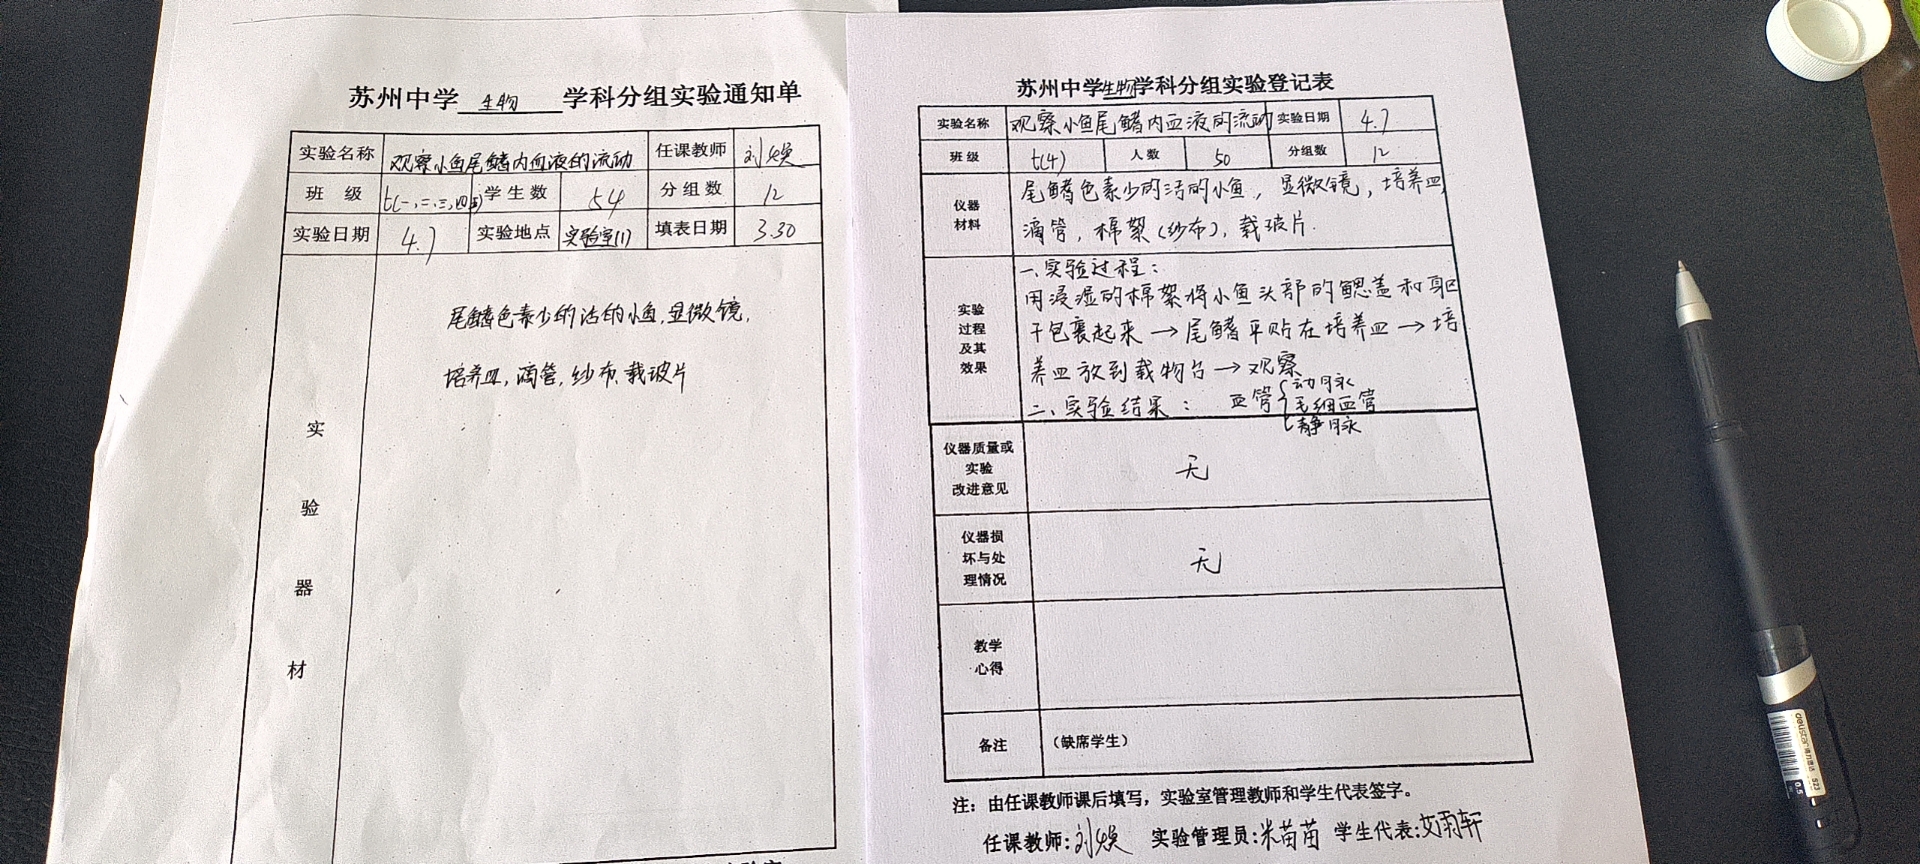 苏州中学 生物 学科分组实验通知单
实验名称 观察小鱼尾鳍内血液的流动 任课教师 刘焕
班 级 七(一、二、三、四、五) 学生数 54 分组数 12
实验日期 4.7 实验地点 实验室(1) 填表日期 3.30
实验器材
尾鳍色素少的活的小鱼,显微镜,
培养皿,滴管,纱布,载玻片
苏州中学生物学科分组实验登记表
实验名称 观察小鱼尾鳍内血液的流动 实验日期 4.7
班 级 七(4) 人 数 50 分组数 12
仪器材料
尾鳍色素少的活的小鱼,显微镜,培养皿,
滴管,棉絮(纱布),载玻片.
实验过程及其效果
一、实验过程:
用浸湿的棉絮将小鱼头部的鳃盖和躯
干包裹起来→尾鳍平贴在培养皿→培
养皿放到载物台→观察
二、实验结果: 血管{动脉
毛细血管
静脉
仪器质量或实验改进意见 无
仪器损坏与处理情况 无
教学心得
备注 (缺席学生)
注:由任课教师课后填写,实验室管理教师和学生代表签字。
任课教师:刘焕 实验管理员:米苗苗 学生代表:艾雨轩
deli
0.5